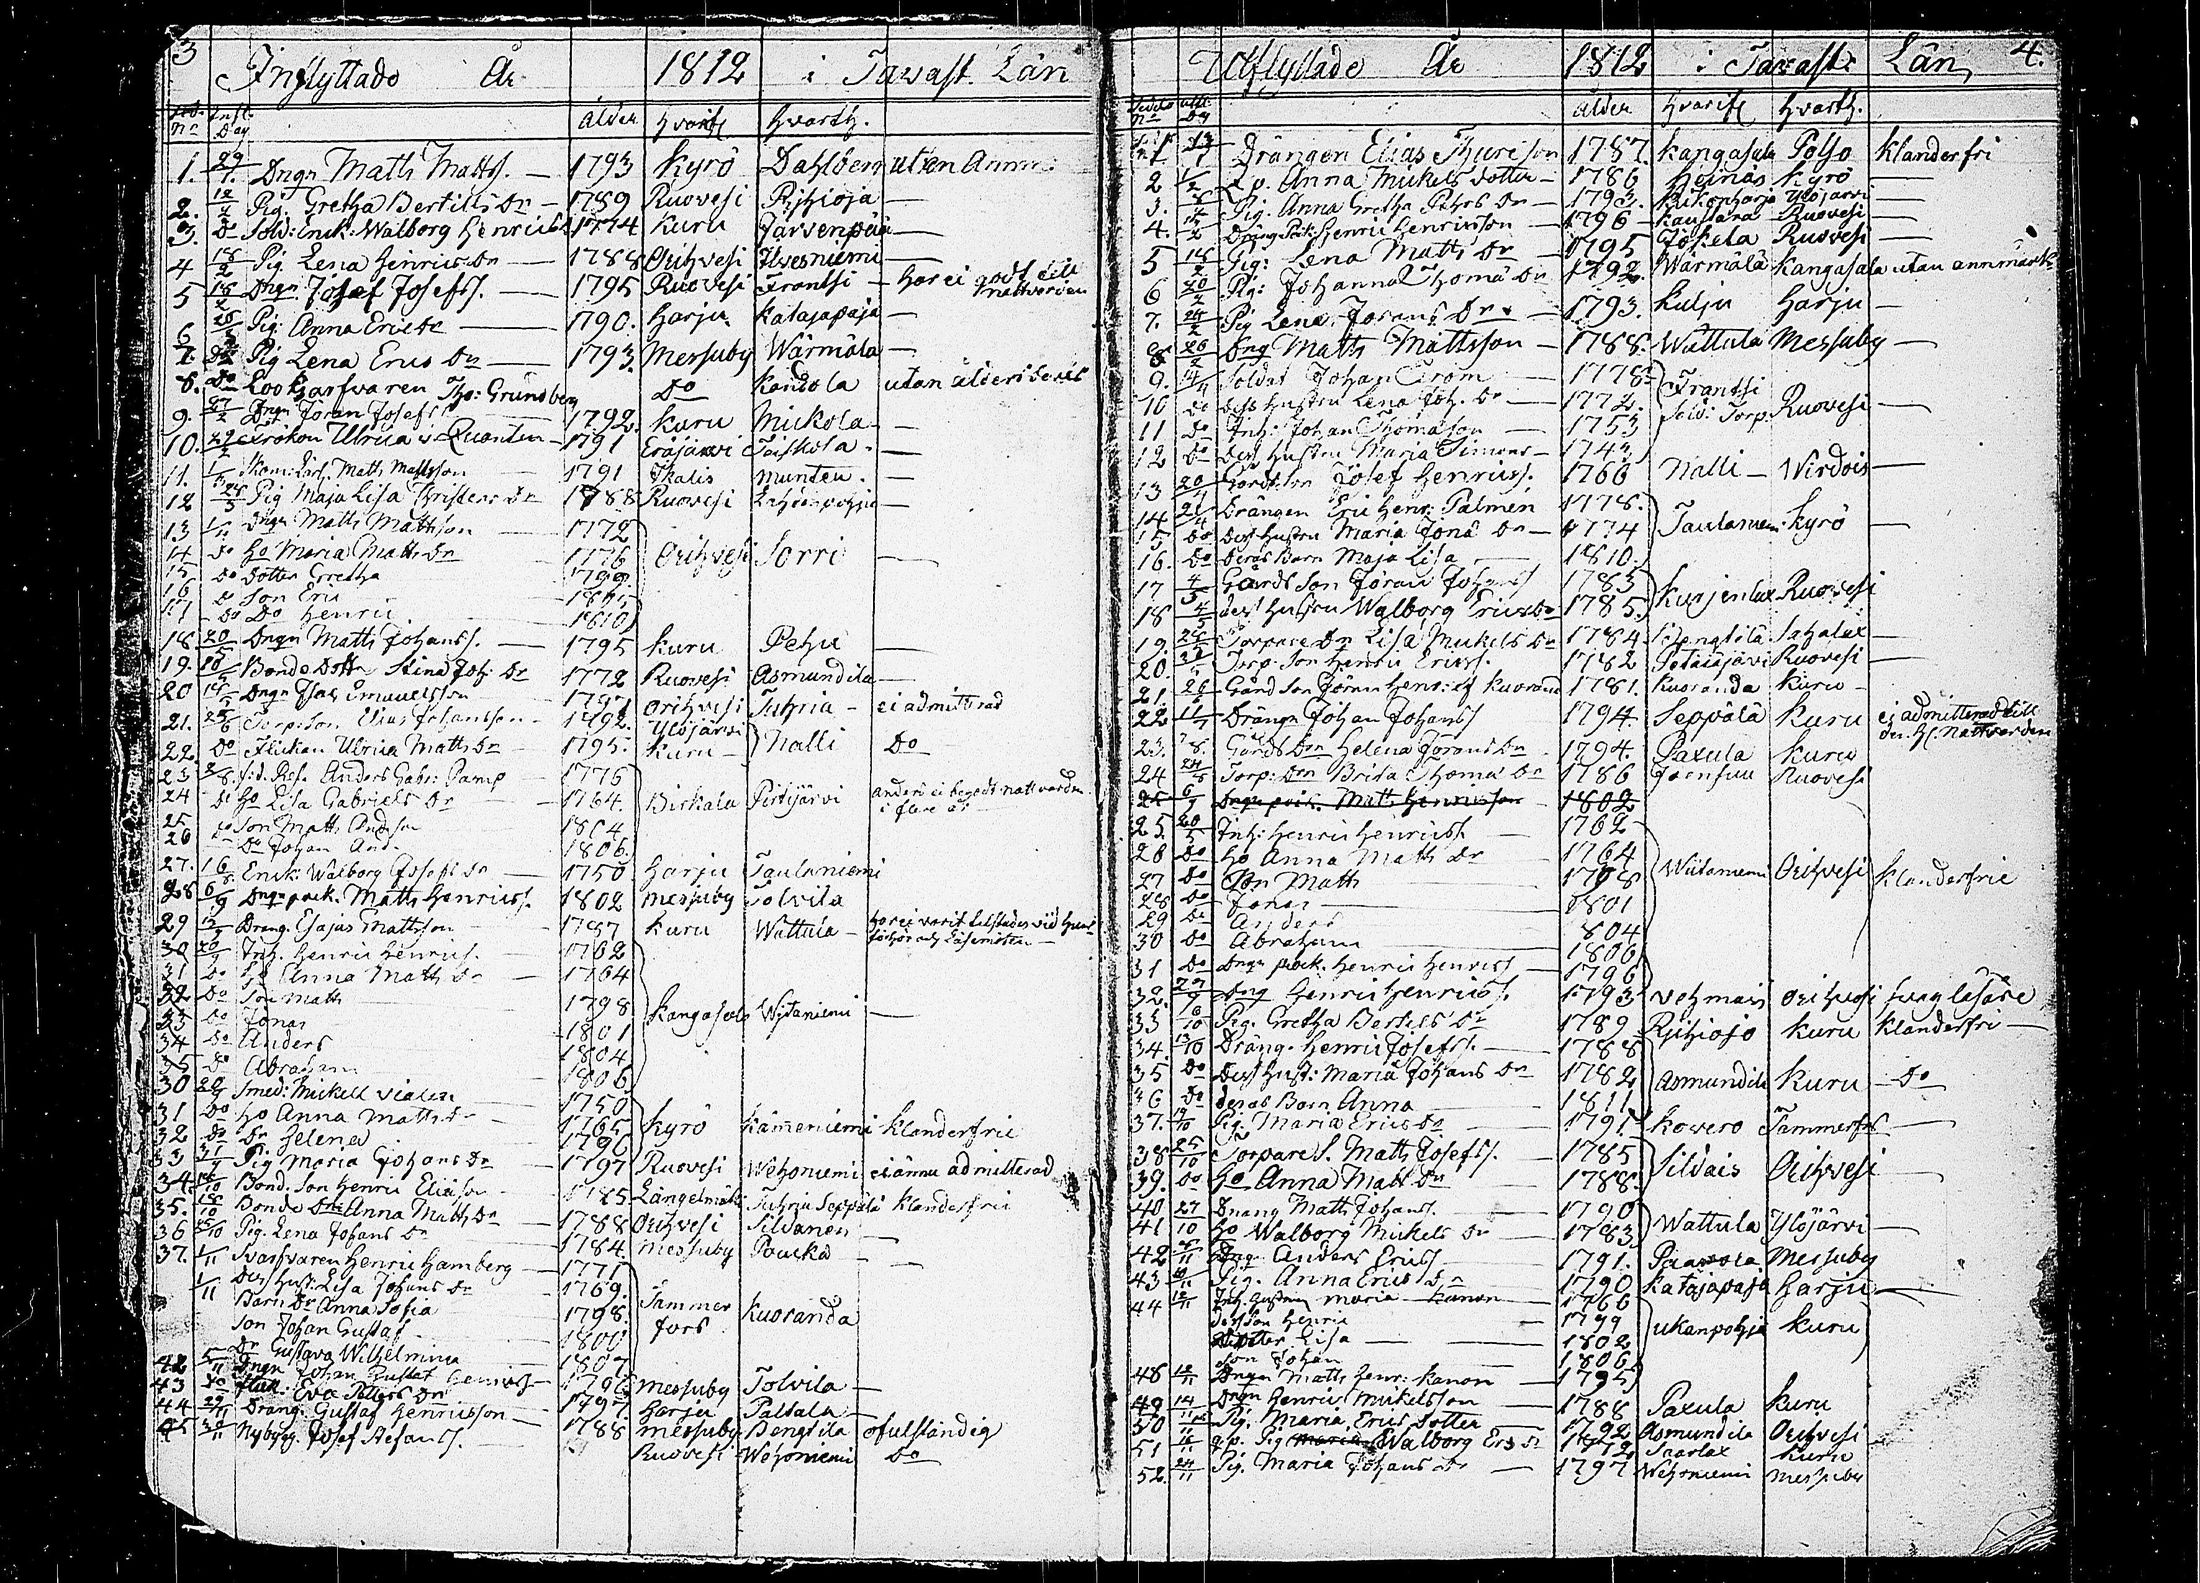 3
Inflyttade År 1812 i Tavast. Län
Infl. Dag ålder hvarifr hvarth.
1. 29/1 Drgn Matts Matts. — 1793 Kyrö Dahlberg utan Anm:
2. 12/2 Pig. Gretha Bertills Dr — 1789 Ruovesi Pihioja —
3. Do Sold: Enk: Walborg Henrics 1774 Kuru Järvenpää —
4 18/2 Pig Lena Henrics Dr — 1788 Orihvesi Ilvesniemi —
5 18/2 Drgn Josef Josefss. — 1795 Ruovesi Frantsi — Har ei gådt till nattvarden
6 26/2 Pig. Anna Erics Dr — 1790. Harju Katajapaja —
7. Do Pig Lena Erics Dr — 1793. Messuby Wärmälä —
8. Do Lookgarfvaren Tho: Grundberg Do Kandola utan ålders bevis
9. 27/2 Drgn Jöran Josefss — 1792. Kuru Mickola —
10. 29/2 Fröken Ulrica v. Quanten — 1791 Eräjärvi Taiskola —
11. Skom: Lärl. Matts Mattsson 1791 Ikalis Muntru. —
12 24/3 Pig Maja Lisa Christers Dr 1788 Ruovesi —
13 Drgn Matts Mattsson — 1772
14 Do Ho Maria Matts Dr 1776 Orihvesi Sorri —
15 Do Dotter Gretha 1799.
16 Do Son Eric
17 Do Do Henric 1810
18. 20/5 Drgn Matts Johanss. — 1795 Kuru Pehu —
19. Bonde Dottr Stina Joh: Dr 1772 Ruovesi Asmundila —
20 Drgn Isac Emanuelsson 1797 Orihvesi Juhria — ei admitterad
21. 25/6 Torp: Son Elias Johansson — 1792. Ylöjärvi
22. Do Flickan Ulrica Matts Dr — 1795. Kuru — Nalli Do
23 f.d. Ref. Anders Gabr: Pamp — 1775
24 Do Ho Lisa Gabriels Dr 1764. Birkala Pirtijärvi anders ei begådt nattvarden i flere år
25 Do Son Matts Anderson 1804
26 Do Do Johan And. 1806.
27. Enk: Walborg Josefs Dr — 1750 Harju Taulaniemi
28 6/9 Drgn pock. Matts Henricss. 1802 Messuby Tolvila
29 Dräng. Esajas Mattsson — 1787 Kuru Wattula —
30 20/9 Inh. Henric Henrics. — 1762
31 Do Ho Anna Matts Dr — 1764
32 Do Son Matts 1798 Kangasala Wijtaniemi —
33 Do Jonas 1801
34 Do Anders 1804
35 Do Abraham 1806
30 29/9 Smed: Mickell Vialen 1750
31 Do Ho Anna Matts Dr — 1765 Kyrö Kämeniemi Klanderfrie
32 Do Dr Helena 1796
33 Pig Maria Johans Dr — 1797 Ruovesi Wehoniemi ei ännu admitterad
34. Bond. Son Henric Eliasson 1785. Längelmäki Juhria Seppälä klanderfri
35. 18/10 Bonde Dr Anna Matts Dr 1788 Orihvesi Sildanen
36 25/10 Pig. Lena Johans Dr 1784. Messuby Paucka —
37. 1/11 Svarfvaren Henric Hamberg — 1771 —
1/11 Dess Hust: Lisa Johans Dr 1769.
Barn Dr Anna Sofia 1798. Tammerfors Kuoranda
Son Johan Gustaf 1800
Dr Gustava Wilhelmina 1807
42 5/11 Drgn Johan Gustaf Henrics — Messuby Tolvila —
43 Do Flick: Eva Petters Dr 1797 Harju Paltala —
44 29/11 Dräng: Gustaf Henricsson — 1788 Messuby Bengtila ofulständig
45 Nybygg. Josef Stefanss. Ruovesi Wehoniemi Do
4.
Utflyttade År 1812 i Tavast: Län
utfl. Dg ålder hvarifr hvarth.
1 Drängen Elias Thurison 1787. Kangasala Polso Klanderfri
2 1/2 q.p. Anna Mickels dotter — 1786 Hoinas Kyrö —
3. Pig. Anna Gretha Pehrs Dr — Ylöjärvi —
4. Dräng Pock: Henric Henricsson — 1796 Kaustara Ruovesi —
5 18/2 Pig: Lena Matts Dr — 1795 Jokela Ruovesi —
6 20/2 Pig: Johanna Thoma Dr 1792. Wärmälä Kangasala utan anmärkn
7. 24/2 Pig Lena Jörans Dr — 1793. Kulju Harju —
8 26/2 Drg Matts Mattsson — 1788. Wattula Messuby —
9. Soldat Johan Ström — 1778
10 Do Dess hustru Lena Joh. Dr — 1772. Frantsi
11 Do Inh: Johan Thomason — 1753 Sold: Torp. Ruovesi —
12 Do Dess hustru Maria Simons — 1743
13 20/4 Gårds Son Josef Henricss. 1766 Nalli — Wirdois —
14 21/4 Drängen Eric Henr: Palmén 1778.
15 Do Dess hustru Maria Jona Dr — 1774 Taulaniemi Kyrö —
16. Do Deras Barn Maja Lisa — 1810
17 4/5 Gårds Son Jöran Johanss 1783
18 4/5 dess hustru Walborg Erics Dr 1785. Kurjenlax Ruovesi
19. Torpare Dr Lisa Mickels Dr 1784. Bengtila Sahalax —
20. Torp. Son Henric Ericss. — 1782 Ruovesi —
21. 26 Gård Son Jöran Henr: af Kuorand 1781. Kuoranda Kuru —
22 Drängn Johan Johanss 1794. Seppälä Kuru ej admitterad till den H. Nattvarden
23. Gårds Drn Helena Jörans Dr 1794. Paxula Kuru
24 Torp: Drn Brita Thoma Dr 1786 Joensuu Ruovesi
25 6/9 Drgn pock. Matts Henricsson 1802
25. 20/5 Inh: Henric Henricss. — 1762
26 Do Ho Anna Matts Dr — 1764
27 Do Son Matts 1798 Wiitaniemi Orihvesi Klanderfrie
28 Do Jonas 1801
29 Do Anders 1804
30 Do Abraham 1806
31 Do Drgn pock. Henric Henricss — 1796
32. 29/9 Drg Henric Henricss. 1793 Vohmais Orihvesi svag läsare
33 Pig. Gretha Bertels Dr 1789 Pihiojo Kuru Klanderfri —
34. 13/10 Dräng. Henric Josefss. — 1788
35 Do Dess Hust: Maria Johans Dr 1782 Asmundila Kuru — Do
36 Do deras Barn Anna 1811
37. Pig. Maria Erics Dr — 1791 Kovero Tammerfors —
38 25/10 Torpare S. Matts Josefss. 1785 Sildais Orihvesi —
39. Do Ho Anna Matts Dr 1788
40 27 Dräng Matts Johanss. 1790
41 10 Ho Walborg Mickels Dr — 1783 Wattula Ylöjärvi —
42 Drg. Anders Ericss — 1791. Paavola Messuby
43 Pig. Anna Erics Dr — 1790 Katajapaja Harju —
44 Inh. hustru Maria Kanon 1766
dess son Henric — 1799 Ukanpohja Kuru
Dotter Lisa — 1802
Son Johan — 1806
48 Drgn Matts Henr: Kanon — 1795
49 14/11 Drgn Henric Mickelsson — 1788 Paxula Kuru
50 Pig. Maria Erics dotter — 1792 Asmundila Orihvesi —
51 q.p. Pig Maria Walborg Ers Dr Saarlax Kuru
52. 24/11 Pig. Maria Johans Dr — 1797 Wehoniemi Messuby